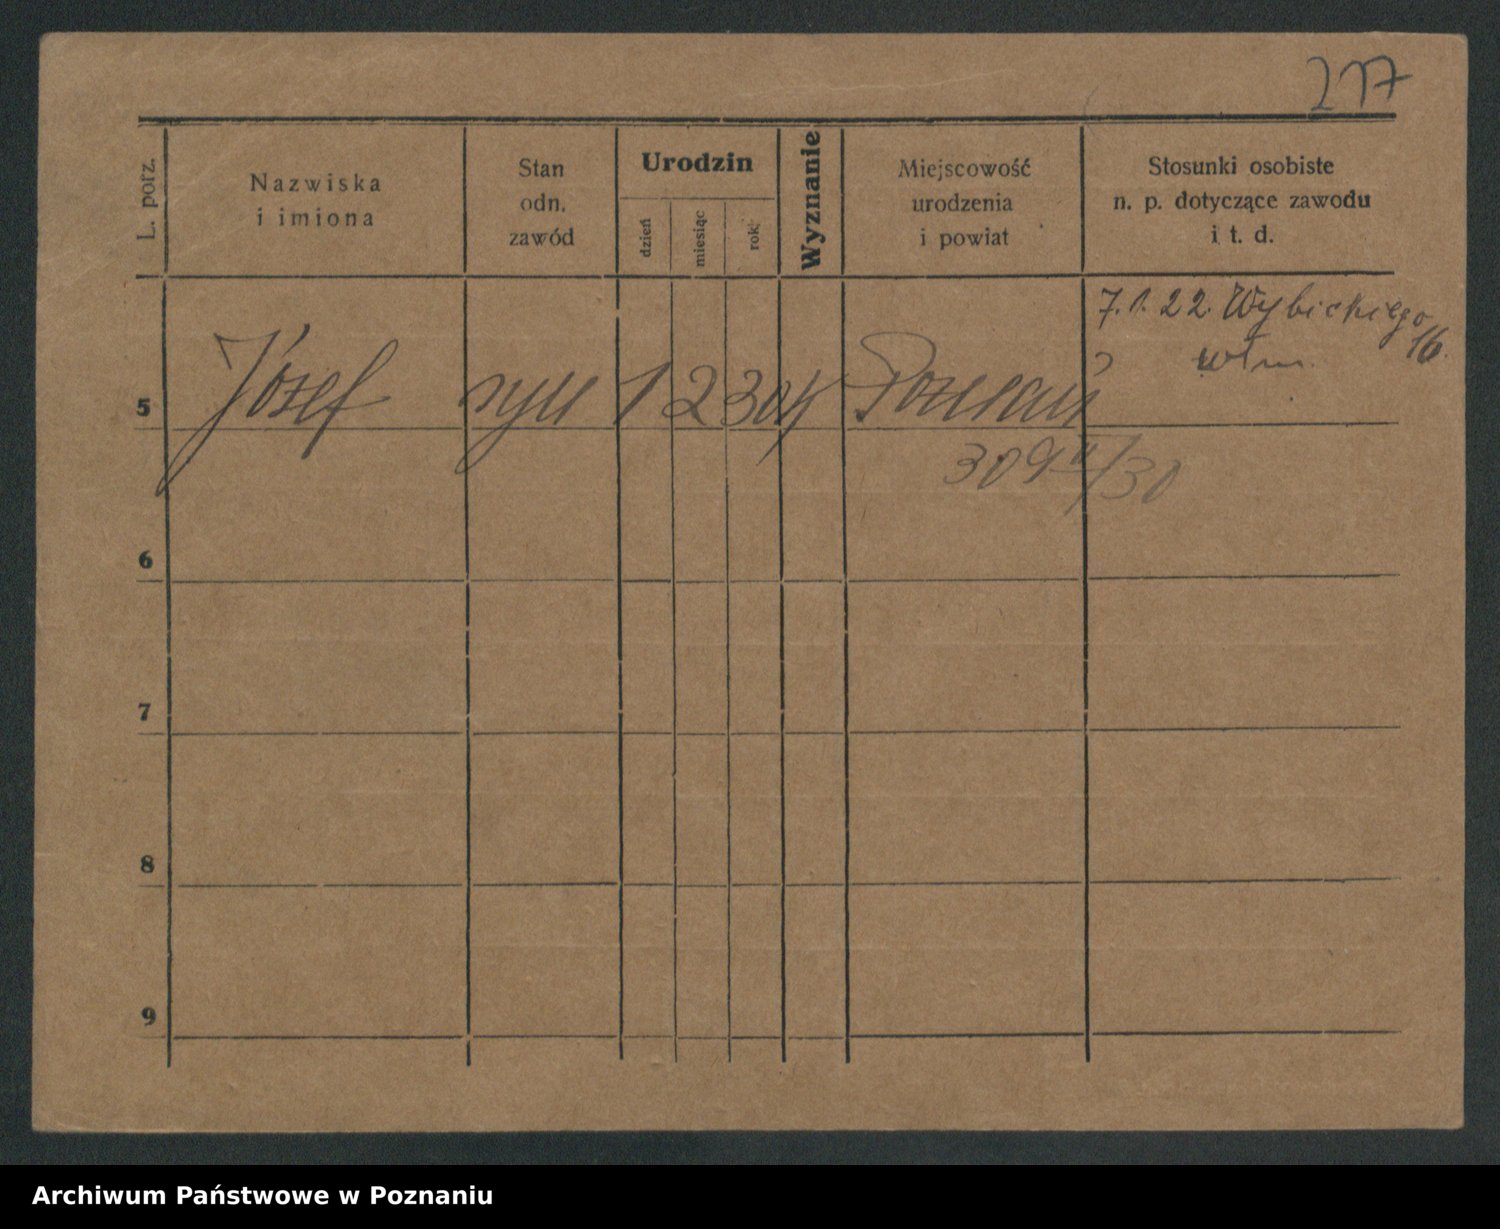 217
L. porz.
Nazwiska
i imiona
Stan
odn.
zawód
Urodzin
dzień
miesiąc
rok
Wyznanie
Miejscowość
urodzenia
i powiat
Stosunki osobiste
n. p. dotyczące zawodu
i t. d.
7. 1. 22. Wybickiego
16.
5 Józef syn 1 2 30 Poznań
6
7
8
9
Archiwum Państwowe w Poznaniu